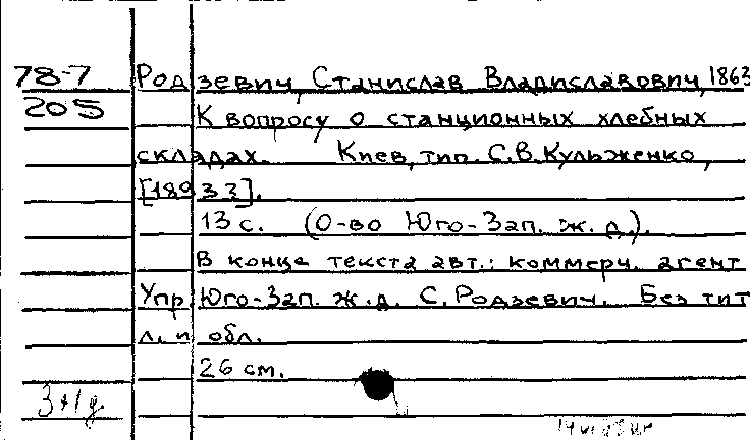 78-7 Родзевич, Станислав Владиславович, 1863
205 К вопросу о станционных хлебных
складах. Киев, тип. С.В. Кульженко,
[1893?].
13 с. (О-во Юго-Зап. ж. д.).
В конце текста авт.: коммерч. агент
Упр Юго-Зап. ж.д. С. Родзевич. Без тит
л. и обл.
26 см.